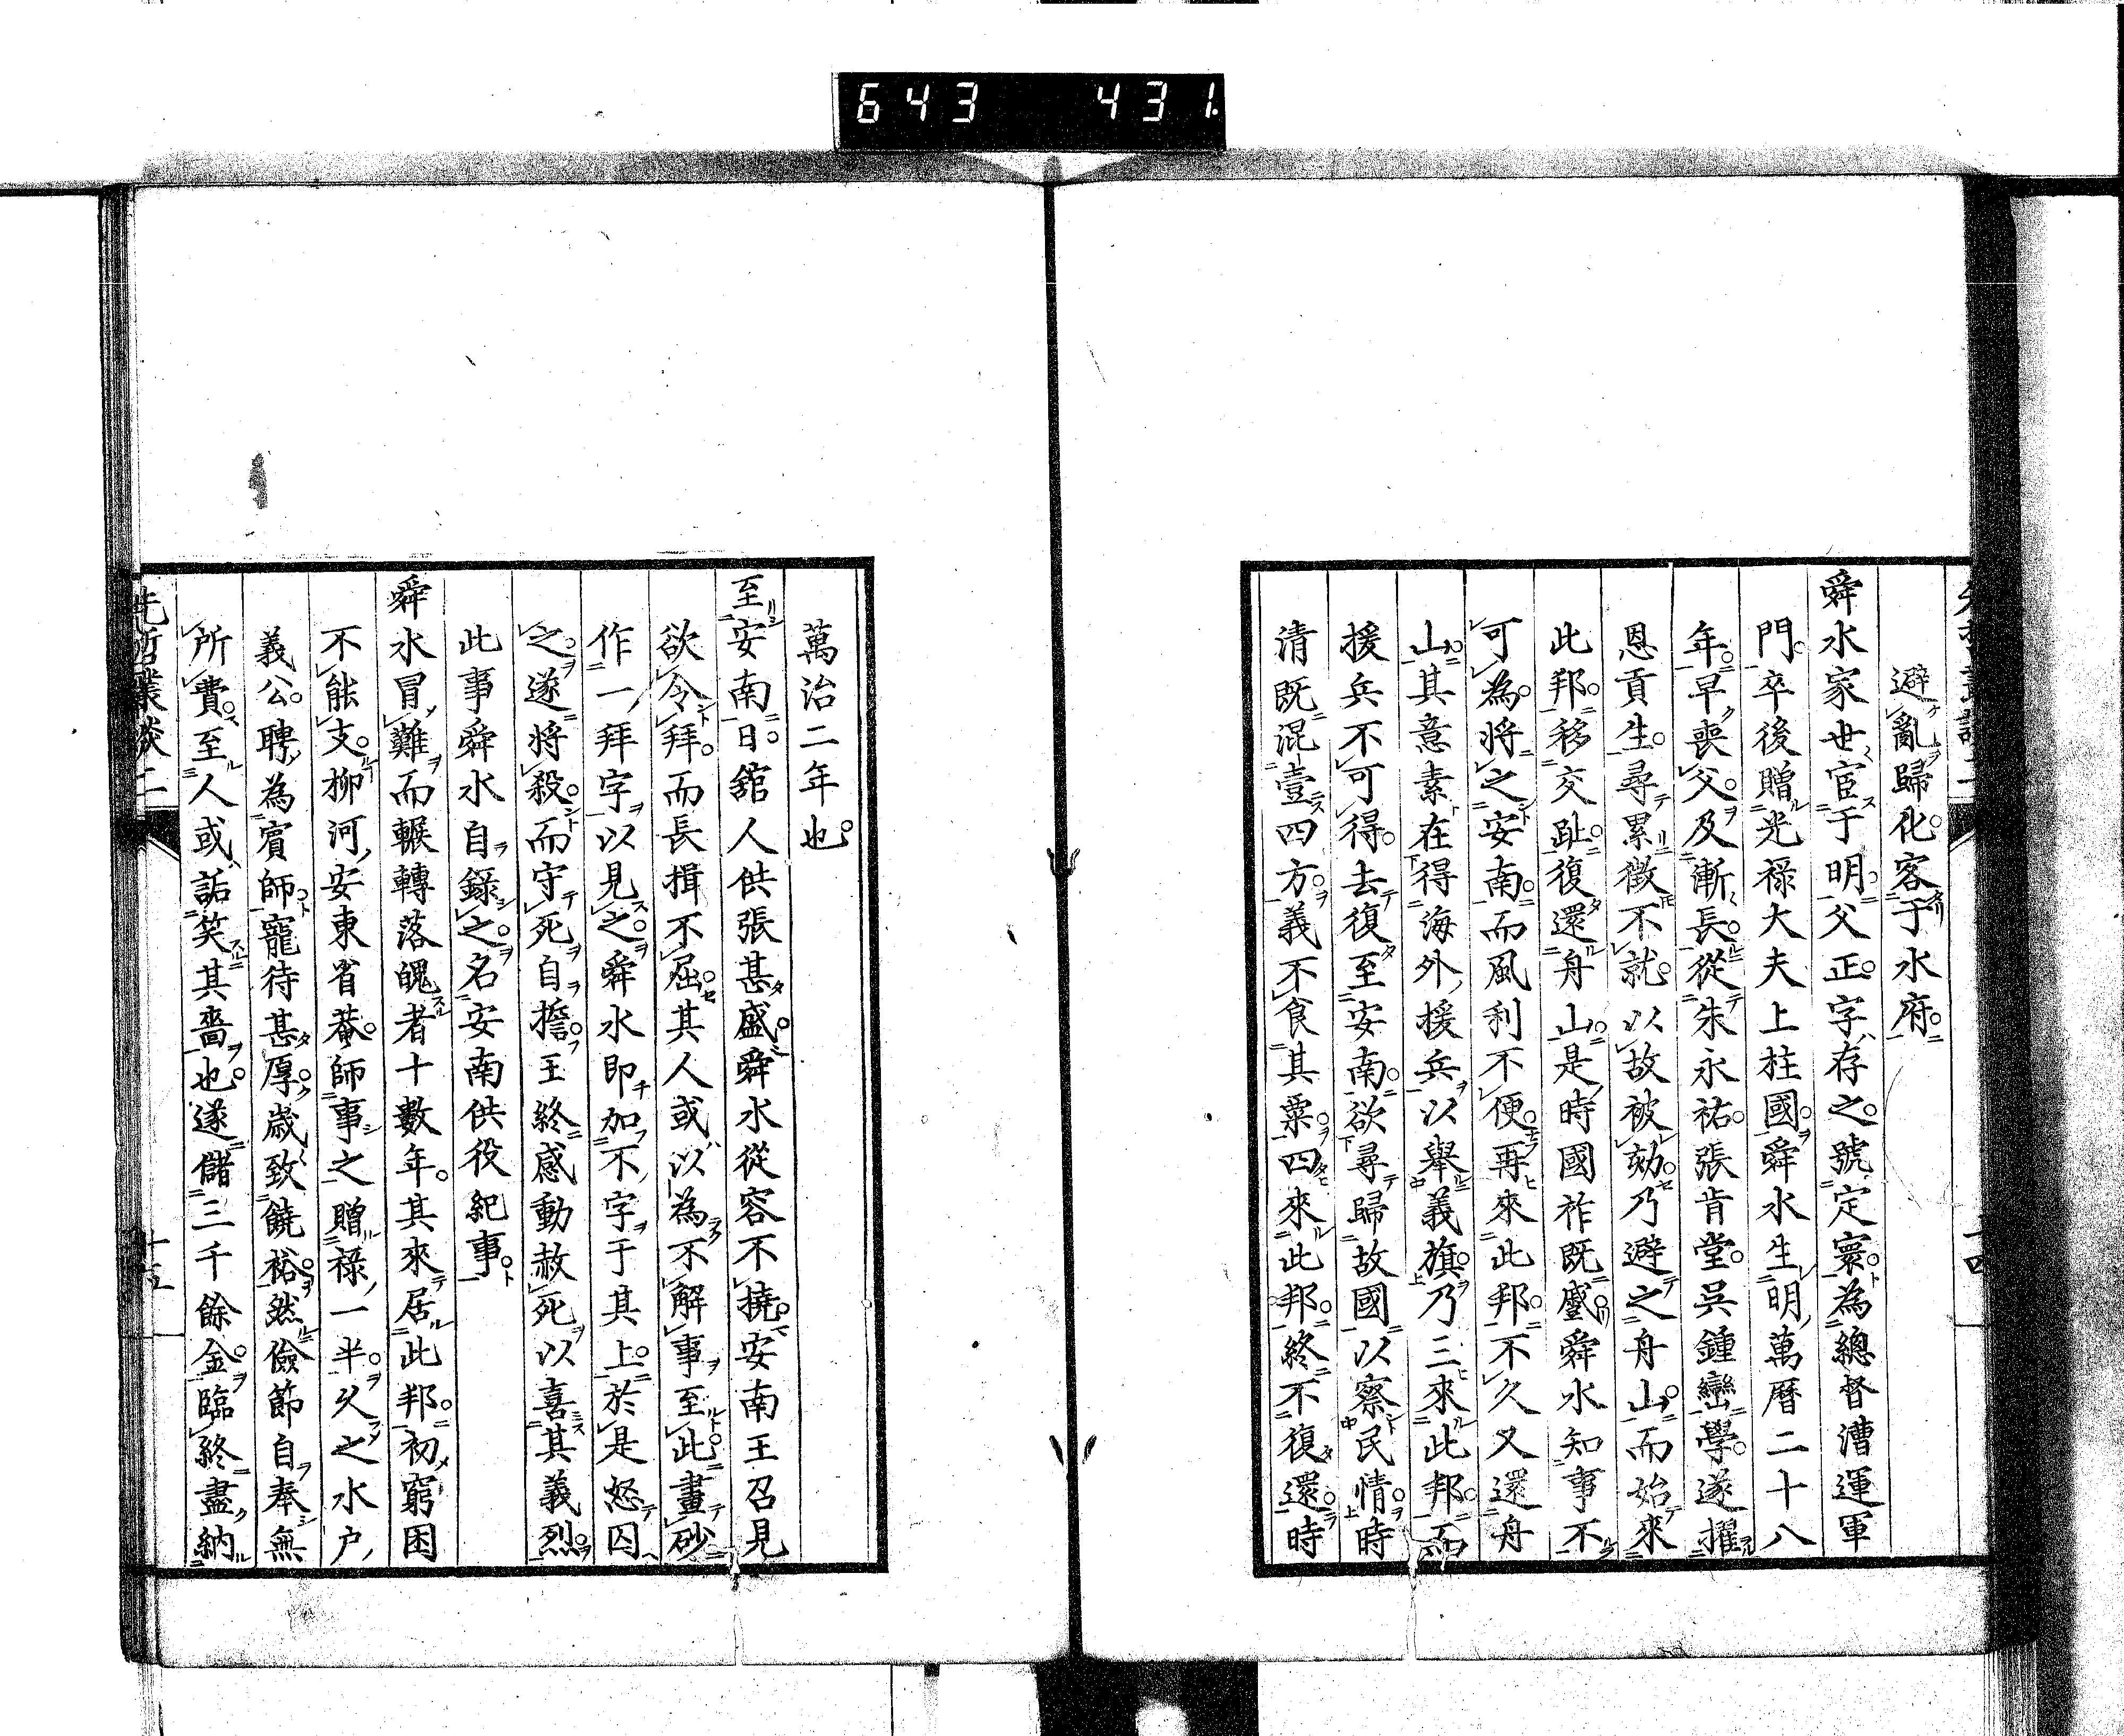 643 431
避亂歸化客于水府
舜水家世宦于明父正字存之號定寰為總督漕運軍
門卒後贈光祿大夫上柱國舜水生明萬曆二十八
年早喪父及漸長從朱永祐張肯堂吳鍾巒學遂擢
恩貢生尋累徵不就以故被劾乃避之舟山而始來
此邦移交趾復還舟山是時國祚既蹙舜水知事不
可為將之安南而風利不便再來此邦不久又還舟
山其意素在得海外援兵以舉義旗乃三來此邦而
援兵不可得去復至安南欲尋歸故國以察民情時
清既混壹四方義不食其粟四來此邦終不復還時
萬治二年也
至安南日舘人供張甚盛舜水從容不撓安南王召見
欲令拜而長揖不屈其人或以為不解事至此畫砂
作一拜字以見之舜水即加不字于其上於是怒囚
之遂將殺而守死自擔王終感動赦死以喜其義烈
此事舜水自錄之名安南供役紀事
舜水冒難而輾轉落魄者十數年其來居此邦初窮困
不能支柳河安東省菴師事之贈祿一半久之水户
義公聘為賓師寵待甚厚歲致饒裕然儉節自奉無
所費至人或詬笑其嗇也遂儲三千餘金臨終盡納
先哲叢談二
十五